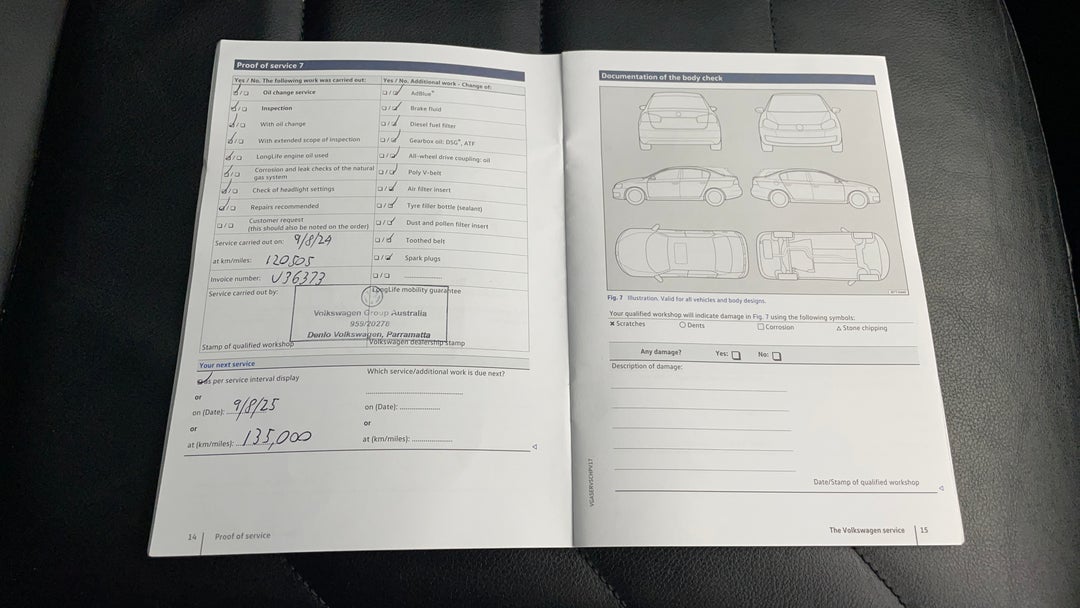 Proof of service 7
Yes / No. The following work was carried out:
☑/☐ Oil change service
☑/☐ Inspection
☑/☐ With oil change
☑/☐ With extended scope of inspection
☑/☐ LongLife engine oil used
☑/☐ Corrosion and leak checks of the natural
gas system
☑/☐ Check of headlight settings
☑/☐ Repairs recommended
☐/☐ Customer request
(this should also be noted on the order)
Service carried out on: 9/8/24
at km/miles: 120505
Invoice number: U36373
Service carried out by:
Yes / No. Additional work - Change of:
☐/☑ AdBlue®
☐/☑ Brake fluid
☐/☑ Diesel fuel filter
☐/☑ Gearbox oil: DSG®, ATF
☐/☑ All-wheel drive coupling: oil
☐/☑ Poly V-belt
☐/☑ Air filter insert
☐/☑ Tyre filler bottle (sealant)
☐/☑ Dust and pollen filter insert
☐/☑ Toothed belt
☐/☑ Spark plugs
☐/☐ ..............
LongLife mobility guarantee
Volkswagen Group Australia
959/20276
Denlo Volkswagen, Parramatta
Stamp of qualified workshop
Volkswagen dealership stamp
Your next service
☑ as per service interval display
or
on (Date): 9/8/25
or
at (km/miles): 135,000
Which service/additional work is due next?
on (Date): ..............
or
at (km/miles): ..............
14 Proof of service
Documentation of the body check
Fig. 7 Illustration. Valid for all vehicles and body designs.
Your qualified workshop will indicate damage in Fig. 7 using the following symbols:
✖ Scratches ○ Dents □ Corrosion △ Stone chipping
Any damage? Yes: ☐ No: ☐
Description of damage:
Date/Stamp of qualified workshop
VGASERVSCHPV17
The Volkswagen service 15